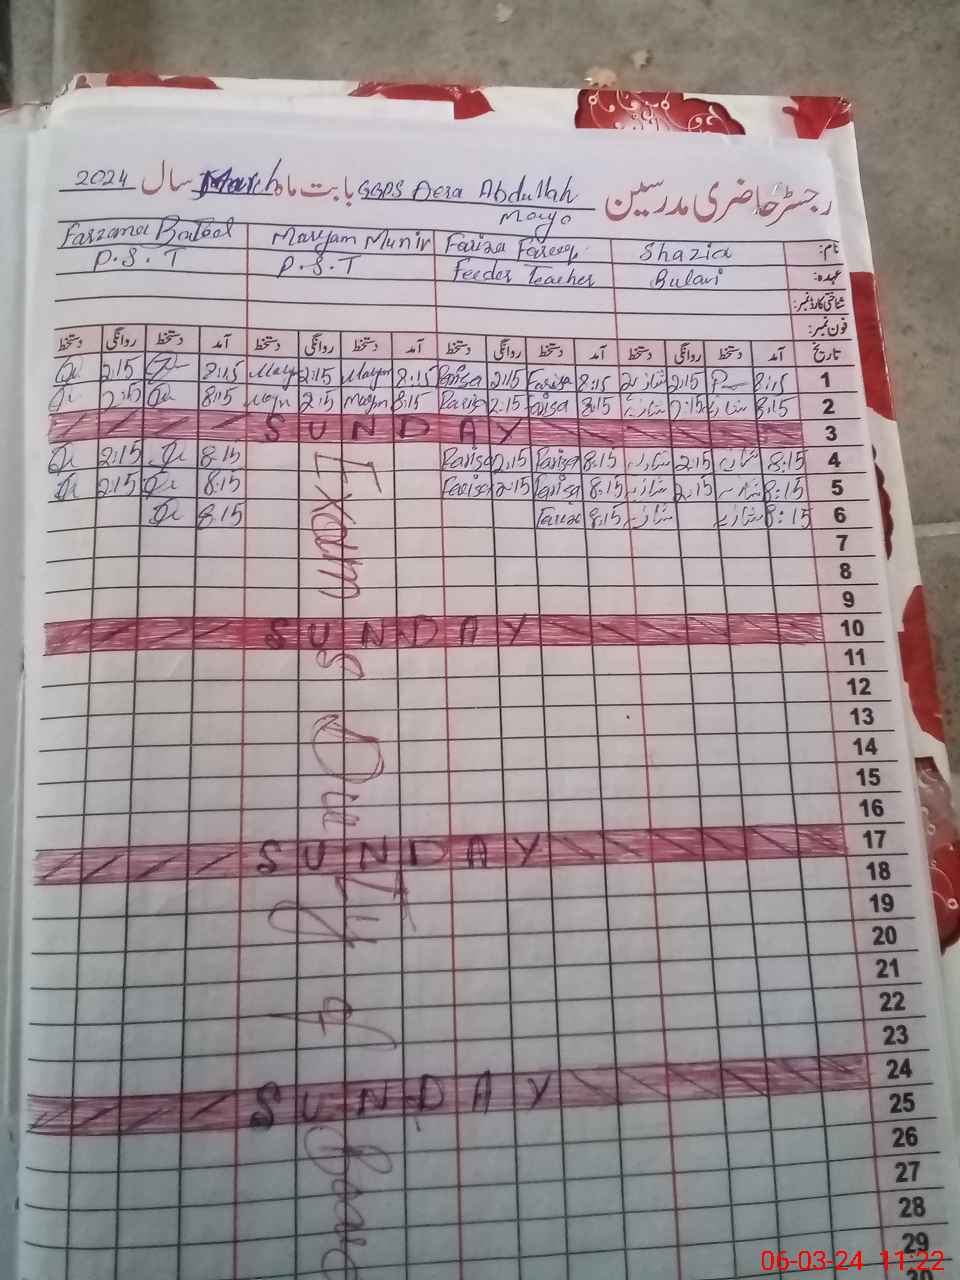 رجسٹر حاضری مدرسین GGPS Dera Abdullah Mayo بابت ماہ March سال 2024
نام: Shazia Fariza Fareeq Maryam Munir Farzana Batool
عہدہ: Bulavi Feeder Teacher P.S.T P.S.T
شناختی کارڈ نمبر:
فون نمبر:
تاریخ آمد دستخط روانگی دستخط آمد دستخط روانگی دستخط آمد دستخط روانگی دستخط آمد دستخط روانگی دستخط
1 8:15 2:15 شازیہ 8:15 Farisa 2:15 Farisa 8:15 Maryn 2:15 Maryn 8:15 2:15
2 8:15 شازیہ 2:15 شازیہ 8:15 Farisa 2:15 Farisa 8:15 Maryn 2:15 Maryn 8:15 2:15
SUNDAY 3
4 8:15 شازیہ 2:15 شازیہ 8:15 Farisa 2:15 Farisa 8:15 2:15
5 8:15 شازیہ 2:15 شازیہ 8:15 Farisa 2:15 Farisa 8:15 2:15
6 8:15 شازیہ شازیہ 8:15 8:15
7
8
9
SUNDAY 10
11
12
13
14
15
16
SUNDAY 17
18
19
20
21
22
23
SUNDAY 24
25
26
27
28
29
Exams Duty of
06-03-24 11:22